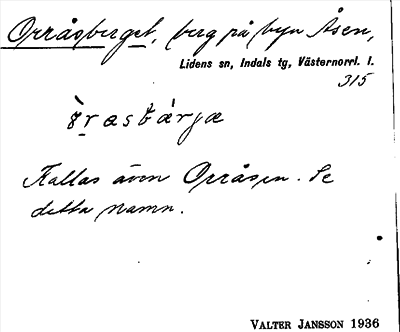 Orråsberget, berg på byn Åsen,
Lidens sn, Indals tg, Västernorrl. l.
315
òrasbárjæ
Kallas även Orråsen. Se
detta namn.
VALTER JANSSON 1936